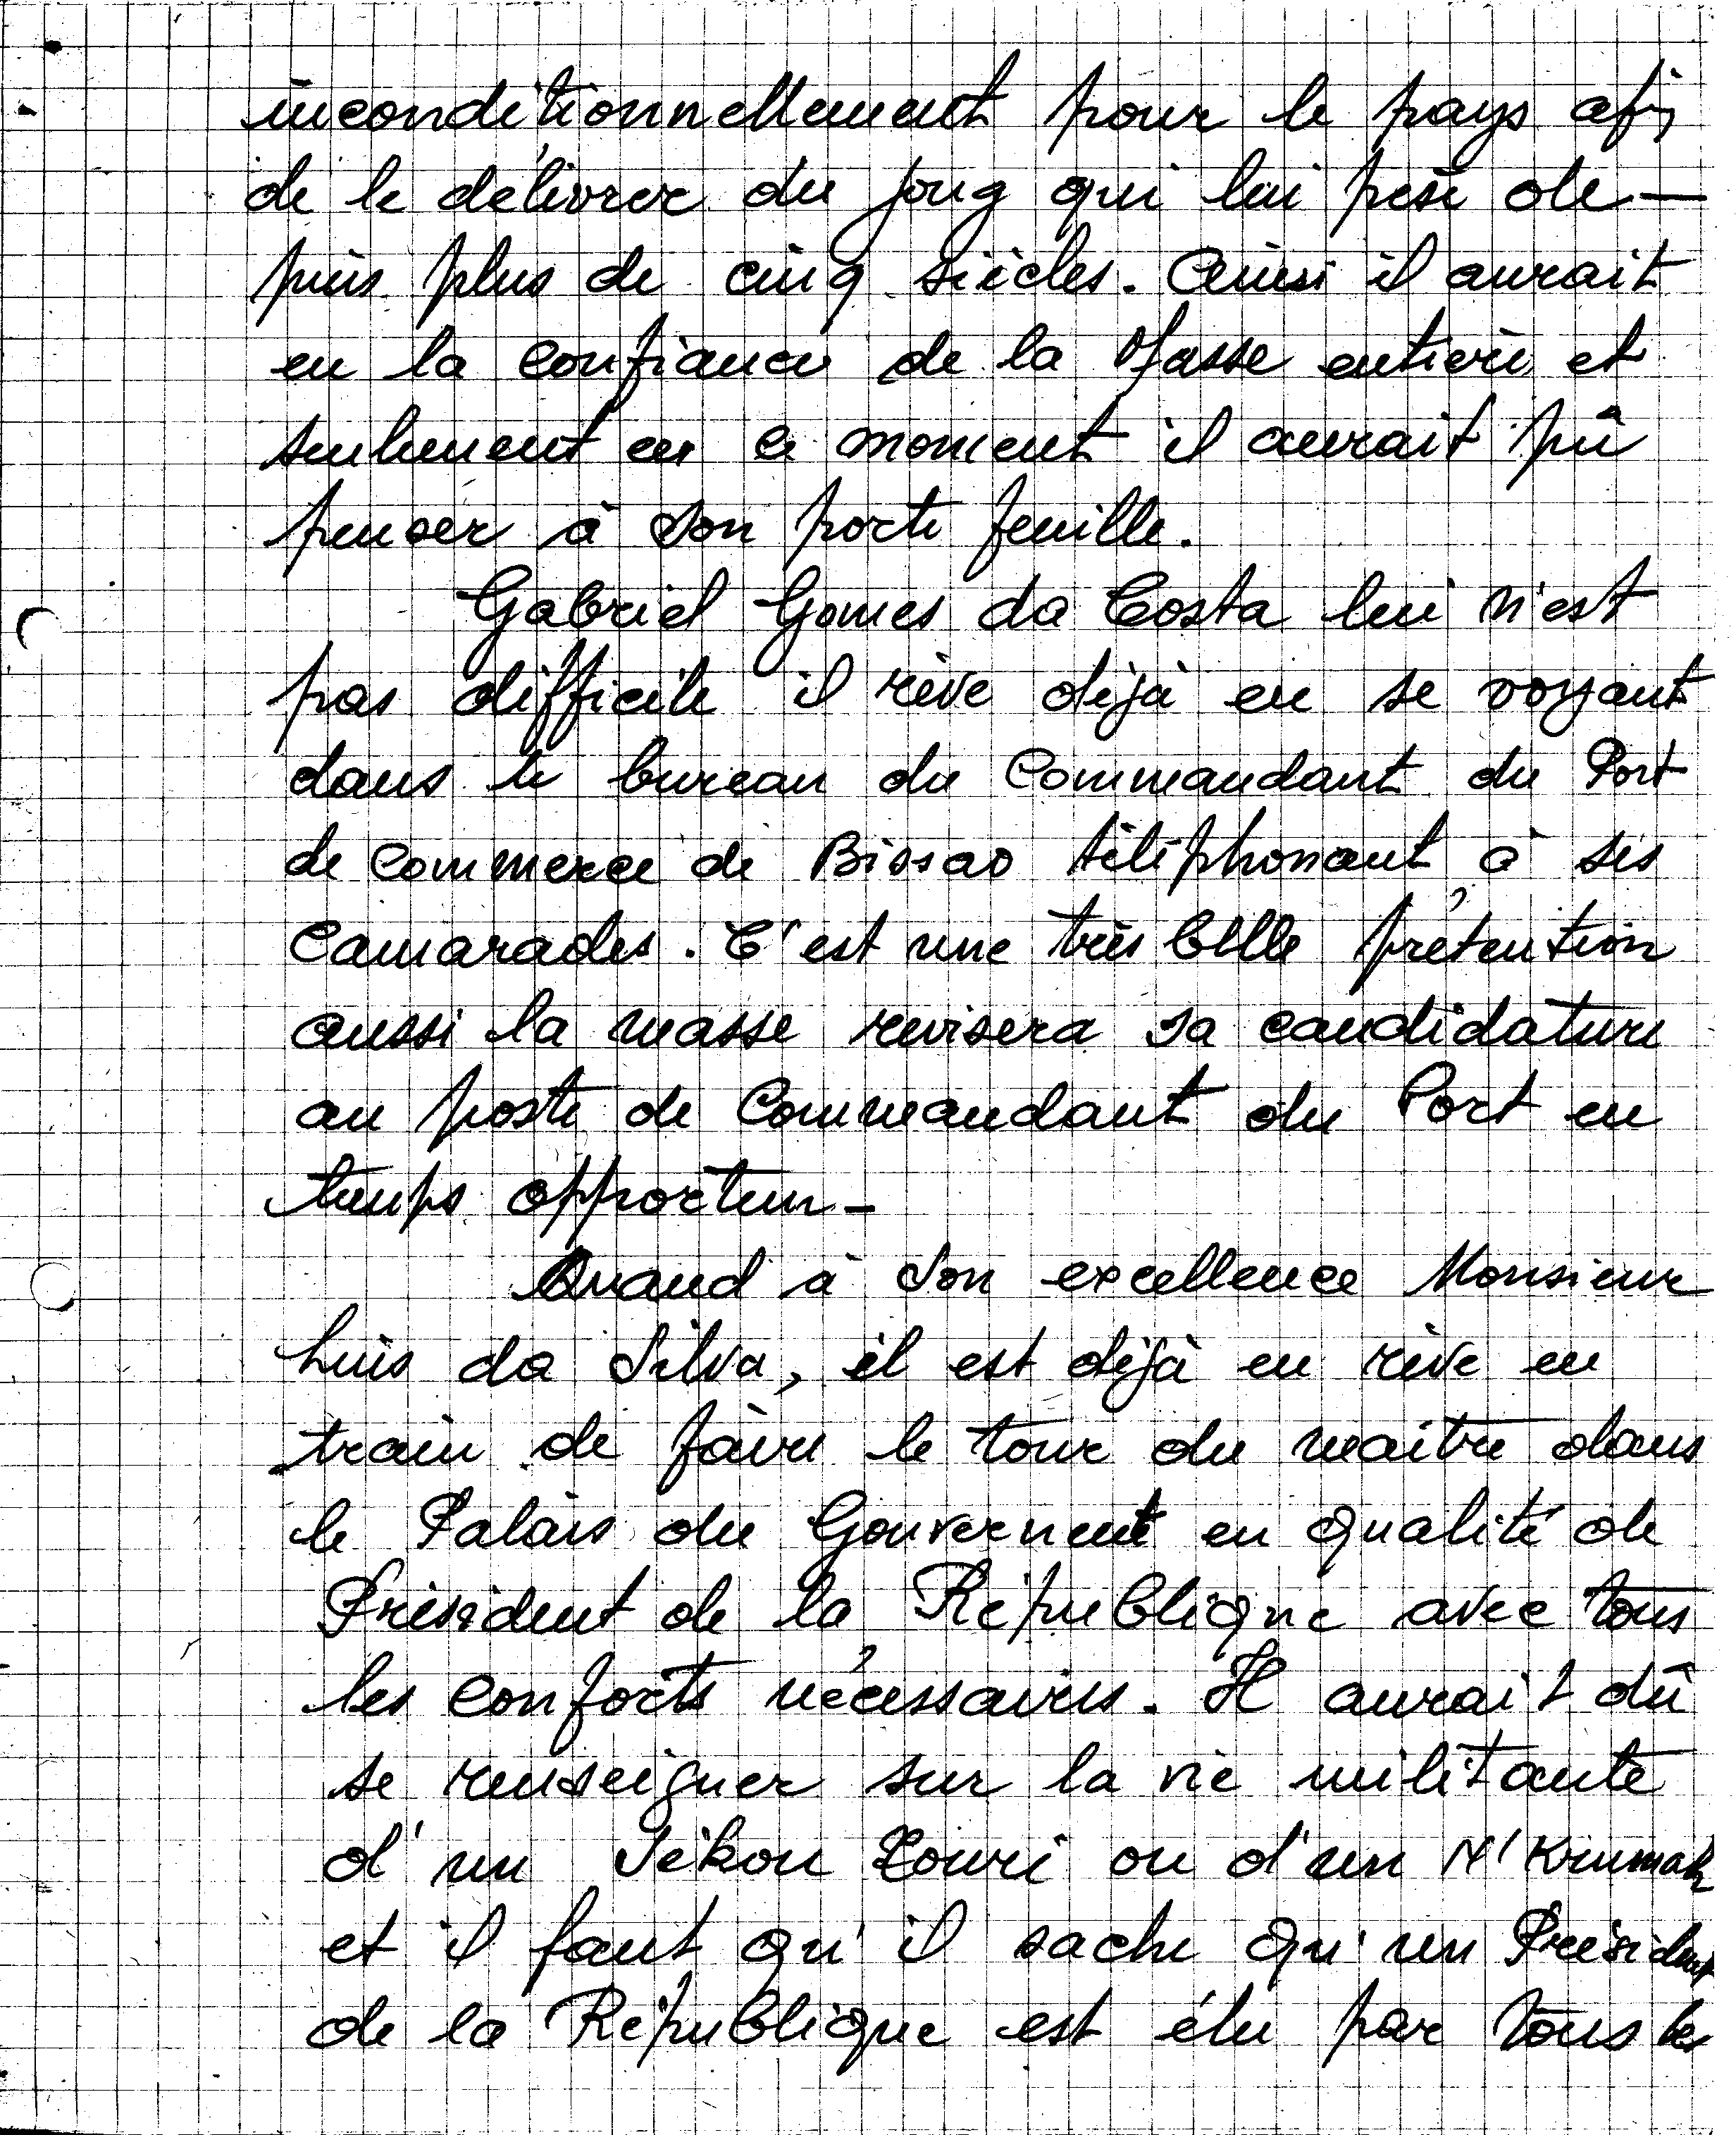 inconditionnellement pour le pays afin
de le délivrer du joug qui lui pèse de-
puis plus de cinq siècles. Ainsi il aurait
eu la confiance de la Masse entière et
seulement en ce moment il aurait pû
penser à son porte feuille.
Gabriel Gomes da Costa lui n'est
pas difficile il rêve déjà en se voyant
dans le bureau du Commandant du Port
de Commerce de Bissao téléphonant à ses
Camarades. C'est une très belle prétention
aussi la masse revisera sa candidature
au poste de Commandant du Port en
temps opportun-
Quand à Son excellence Monsieur
Luis da Silva, il est déjà en rêve en
train de faire le tour du maître dans
le Palais du Gouvernemt en qualité de
Président de la République avec tous
les conforts nécessaires. Il aurait dû
se renseigner sur la vie militante
d'un Sékou Touré ou d'un N'Krumah
et il faut qu'il sache qu'un Président
de la République est élu par tous les